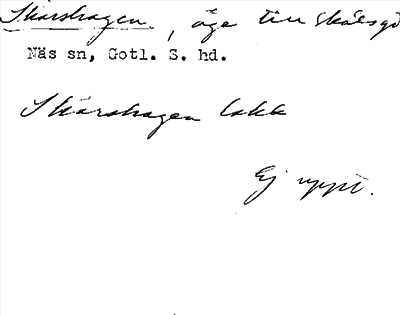 Skarshagen, äga till Skalsgå
Näs sn, Gotl. S. hd.
Skarshagen lakk
Ej uppt.